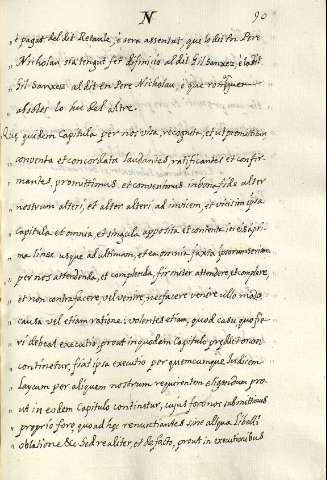 N 90
„ e pagat del dit Retaule, e sera assentat, que lo dit en Pere
„ Nicholau sia tengut fer difinicio al dit Gil Sanxez, e lo dit
„ Gil Sanxez al dit en Pere Nicholau, e que romanguen
„ absolts lo hu del altre.
Quæ quidem Capitula per nos visa, recognita, et ut promittitur
„ conventa et concordata laudantes, ratificantes et confir-
„ mantes, promittimus, et convenimus in bona fide alter
„ nostrum alteri, et alter alteri ad invicem, et vicissim ipsa
„ Capitula et omnia, et singula apposita et contenta in eis a pri-
„ ma linea usque ad ultimam, et ea omnia juxta ipsorum seriem
„ per nos attendenda, et complenda, firmiter attendere, et complere,
„ et non contrafacere, vel venire, nec facere venire ullo modo,
„ causa vel etiam ratione; volentes etiam, quod casu quo fie-
„ ri debeat executio, prout in quodam Capitulo predictorum
„ continetur, fiat ipsa executio per quemcumque Judicem
„ laycum per aliquem nostrum requirentem eligendum pro-
„ ut in eodem Capitulo continetur, cujus foro nos submittimus
„ proprio foro quo ad hæc renuntiantes sine aliqua libelli
„ oblatione &c. Sed realiter, et de facto, prout in executionibus